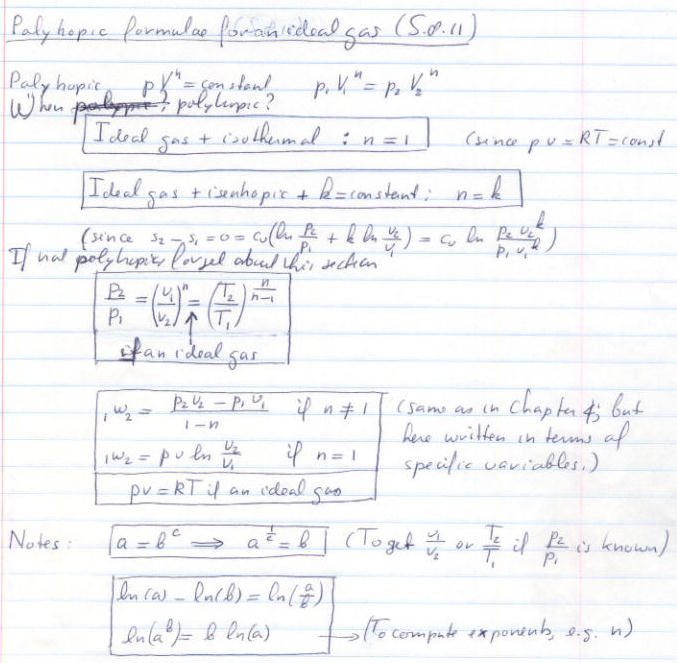 Polytropic formulae for an ideal gas (S.8.11)
Polytropic pVⁿ = constant p₁V₁ⁿ = p₂V₂ⁿ
When polytropic?
Ideal gas + isothermal : n = 1 (since pv = RT = const
Ideal gas + isentropic + k = constant : n = k
(since s₂ - s₁ = 0 = cᵥ(ln p₂/p₁ + k ln v₂/v₁) = cᵥ ln p₂v₂ᵏ/p₁v₁ᵏ)
If not polytropic, forget about this section
p₂/p₁ = (v₁/v₂)ⁿ = (T₂/T₁)^(n/(n-1))
if an ideal gas
₁w₂ = (p₂v₂ - p₁v₁)/(1-n) if n ≠ 1 (same as in Chapter 4; but
here written in terms of
₁w₂ = pv ln v₂/v₁ if n = 1 specific variables.)
pv = RT if an ideal gas
Notes: a = b^c ⟹ a^(1/c) = b (To get v₁/v₂ or T₂/T₁ if p₂/p₁ is known)
ln(a) - ln(b) = ln(a/b)
ln(a^b) = b ln(a) → (To compute exponents, e.g. n)